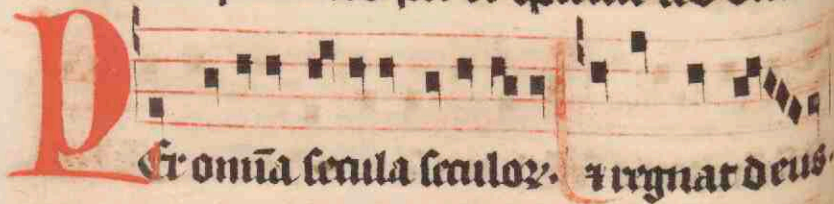 Per omīa secula seculoꝝ. ⁊ regnat deus